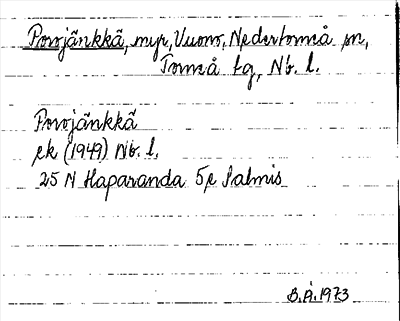 Porojänkkä, myr, Vuono, Nedertorneå sn,
Torneå tg, Nb. l.
Porojänkkä
ek (1949) Nb. l.
25 N Haparanda 5e Salmis
B.Å. 1973